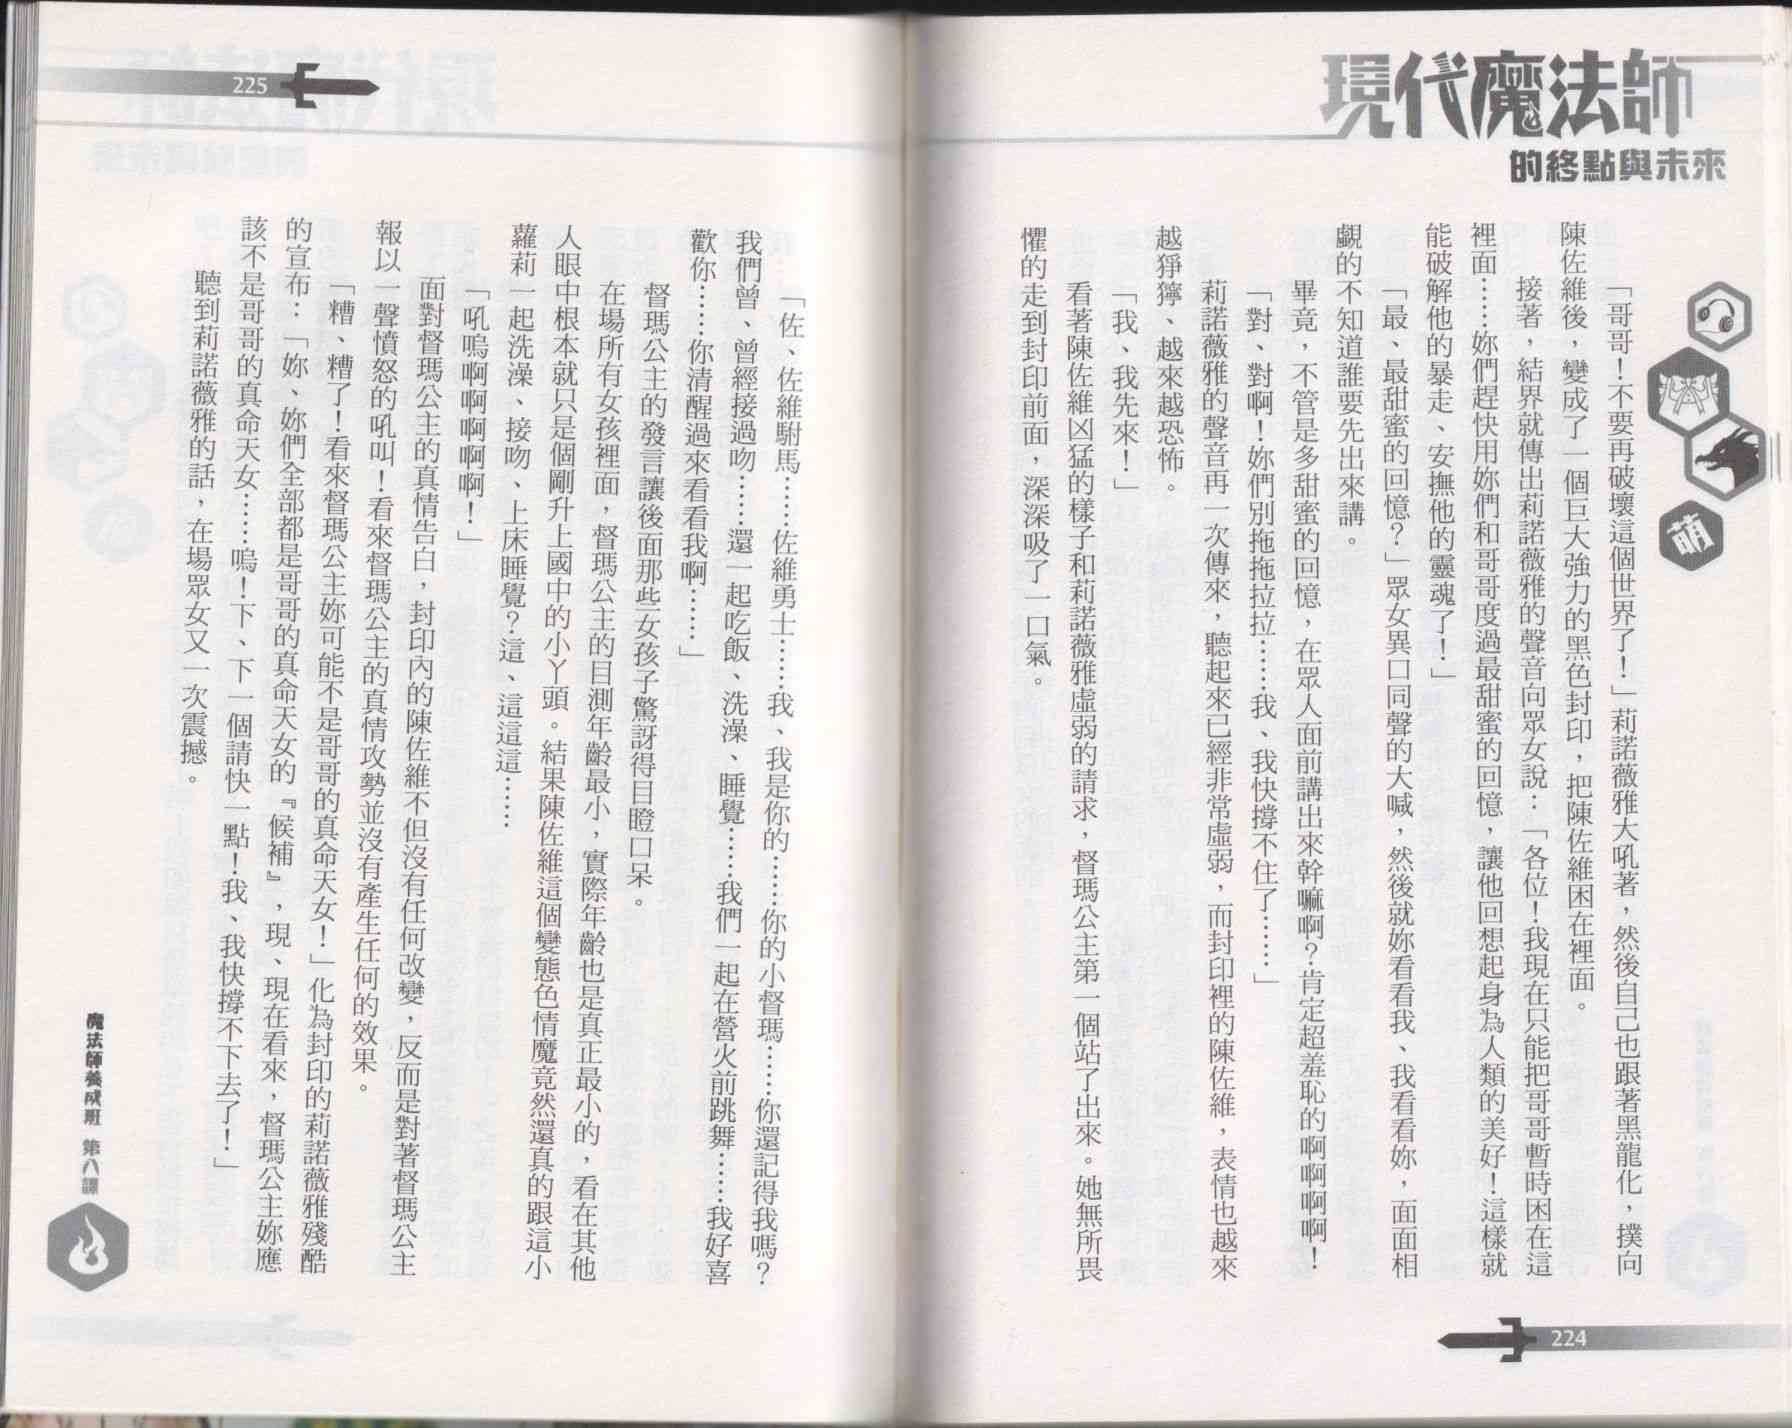 現代魔法師
的終點與未來
萌
「哥哥！不要再破壞這個世界了！」莉諾薇雅大吼著，然後自己也跟著黑龍化，撲向
陳佐維後，變成了一個巨大強力的黑色封印，把陳佐維困在裡面。
接著，結界就傳出莉諾薇雅的聲音向眾女說：「各位！我現在只能把哥哥暫時困在這
裡面……妳們趕快用妳們和哥哥度過最甜蜜的回憶，讓他回想起身為人類的美好！這樣就
能破解他的暴走、安撫他的靈魂了！」
「最、最甜蜜的回憶？」眾女異口同聲的大喊，然後就妳看看我、我看看妳，面面相
覷的不知道誰要先出來講。
畢竟，不管是多甜蜜的回憶，在眾人面前講出來幹嘛啊？肯定超羞恥的啊啊啊啊！
「對、對啊！妳們別拖拖拉拉……我、我快撐不住了……」
莉諾薇雅的聲音再一次傳來，聽起來已經非常虛弱，而封印裡的陳佐維，表情也越來
越猙獰、越來越恐怖。
「我、我先來！」
看著陳佐維凶猛的樣子和莉諾薇雅虛弱的請求，督瑪公主第一個站了出來。她無所畏
懼的走到封印前面，深深吸了一口氣。
224
225
「佐、佐維駙馬……佐維勇士……我、我是你的……你的小督瑪……你還記得我嗎？
我們曾、曾經接過吻……還一起吃飯、洗澡、睡覺……我們一起在營火前跳舞……我好喜
歡你……你清醒過來看看我啊……」
督瑪公主的發言讓後面那些女孩子驚訝得目瞪口呆。
在場所有女孩裡面，督瑪公主的目測年齡最小，實際年齡也是真正最小的，看在其他
人眼中根本就只是個剛升上國中的小丫頭。結果陳佐維這個變態色情魔竟然還真的跟這小
蘿莉一起洗澡、接吻、上床睡覺？這、這這這……
「吼嗚啊啊啊啊啊！」
面對督瑪公主的真情告白，封印內的陳佐維不但沒有任何改變，反而是對著督瑪公主
報以一聲憤怒的吼叫！看來督瑪公主的真情攻勢並沒有產生任何的效果。
「糟、糟了！看來督瑪公主妳可能不是哥哥的真命天女！」化為封印的莉諾薇雅殘酷
的宣布：「妳、妳們全部都是哥哥的真命天女的『候補』，現、現在看來，督瑪公主妳應
該不是哥哥的真命天女……嗚！下、下一個請快一點！我、我快撐不下去了！」
聽到莉諾薇雅的話，在場眾女又一次震撼。
魔法師養成班 第八課